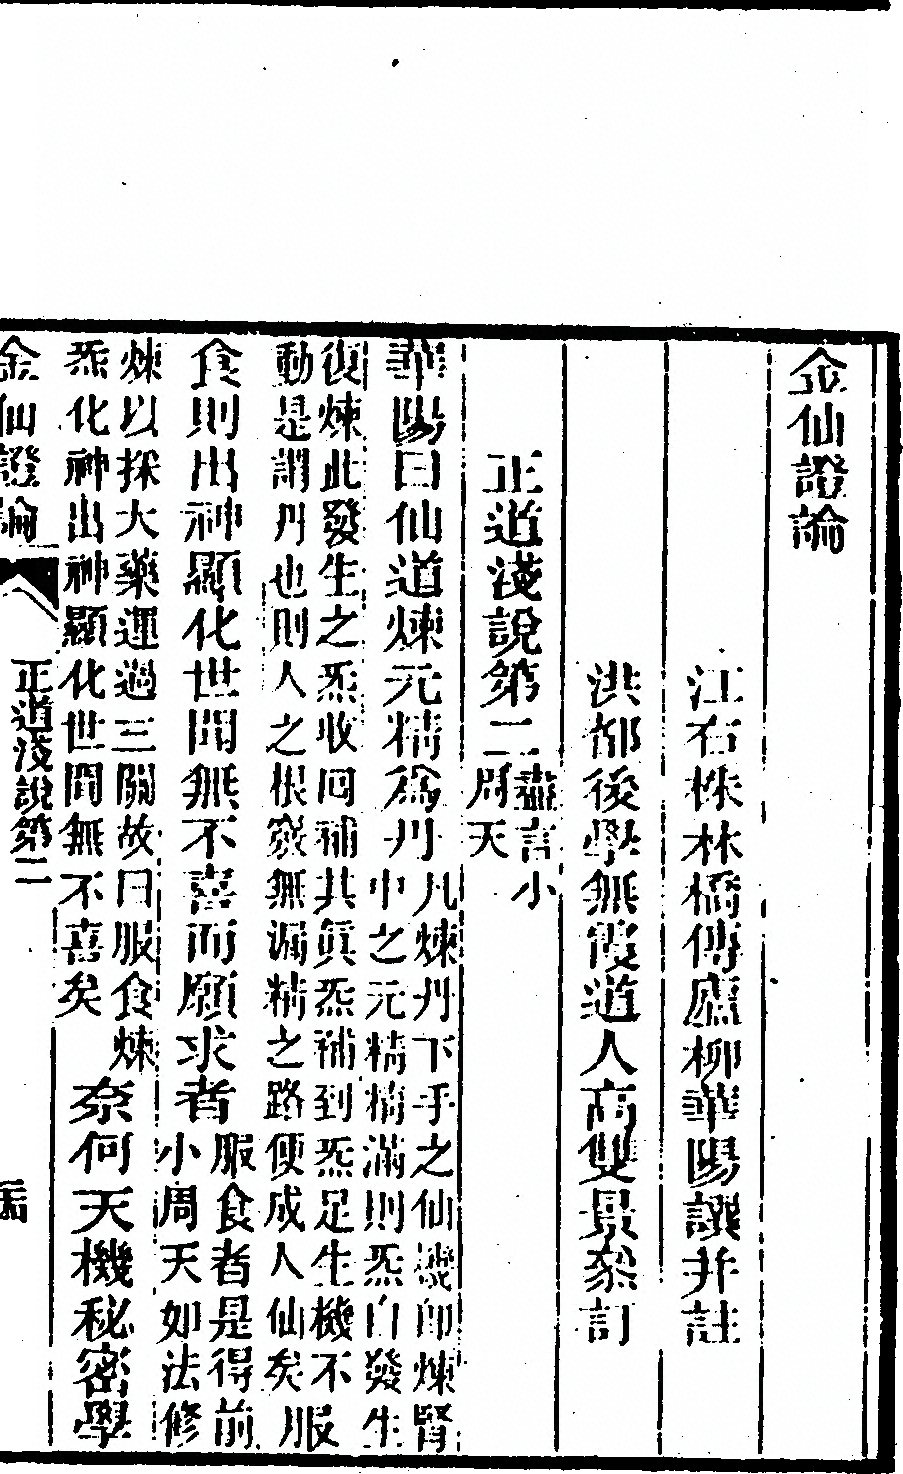 金仙證論
江右株林橋傳廬柳華陽譔并註
洪都後學無霞道人高雙景叅訂
正道淺說第二
盡言小
周天
華陽曰仙道煉元精為丹
凡煉丹下手之仙機即煉腎
中之元精精滿則炁自發生
復煉此發生之炁收回補其眞炁補到炁足生機不
動是謂丹也則人之根竅無漏精之路便成人仙矣
服
食則出神顯化世間無不喜而願求者
服食者是得前
小周天如法修
煉以採大藥運過三關故曰服食煉
炁化神出神顯化世間無不喜矣
奈何天機秘密學
金仙證論
正道淺說第二